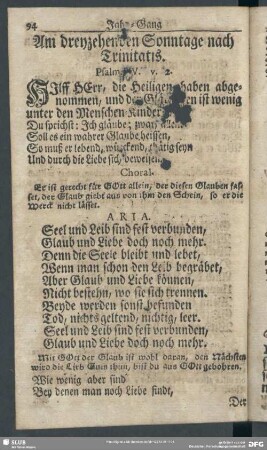 94 Jahr-Gang
Am dreyzehenden Sonntage nach
Trinitatis.
Psalm V. v. 2.
Hilff HErr, die Heiligen haben abge-
nommen, und der Gläubigen ist wenig
unter den Menschen-Kindern
Du sprichst: Ich gläube; zwar,
Soll es ein wahrer Glaube heissen,
So muß er lebend, würckend, thätig seyn
Und durch die Liebe sich beweisen.
Choral.
Es ist gerecht für GOtt allein, der diesen Glauben fas-
set, der Glaub giebt aus von ihm den Schein, so er die
Werck nicht lässet.
ARIA.
Seel und Leib sind fest verbunden,
Glaub und Liebe doch noch mehr.
Denn die Seele bleibt und lebet,
Wenn man schon den Leib begräbet,
Aber Glaub und Liebe können,
Nicht bestehn, wo sie sich trennen.
Beyde werden sonst befunden
Tod, nichts geltend, nichtig, leer.
Seel und Leib sind fest verbunden,
Glaub und Liebe doch noch mehr.
Mit GOtt der Glaub ist wohl daran, den Nächsten
wird die Lieb Guts thun, bist du aus GOtt gebohren.
Wie wenig aber sind
Bey denen man noch Liebe findt,
Der
SLUB
DFG